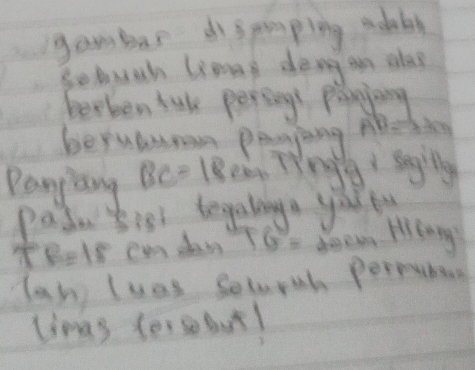 gambar disamping adalah
sebuah limas dengan alas
berbentuk persegi panjang
berukuran panjang AB=
Panjang BC=18cm Tinggi segitiga
pada sisi tegaknya yaitu
TE=18 cm dan TG= 20cm Hitung
lah luas seluruh permukaan
limas tersebut!